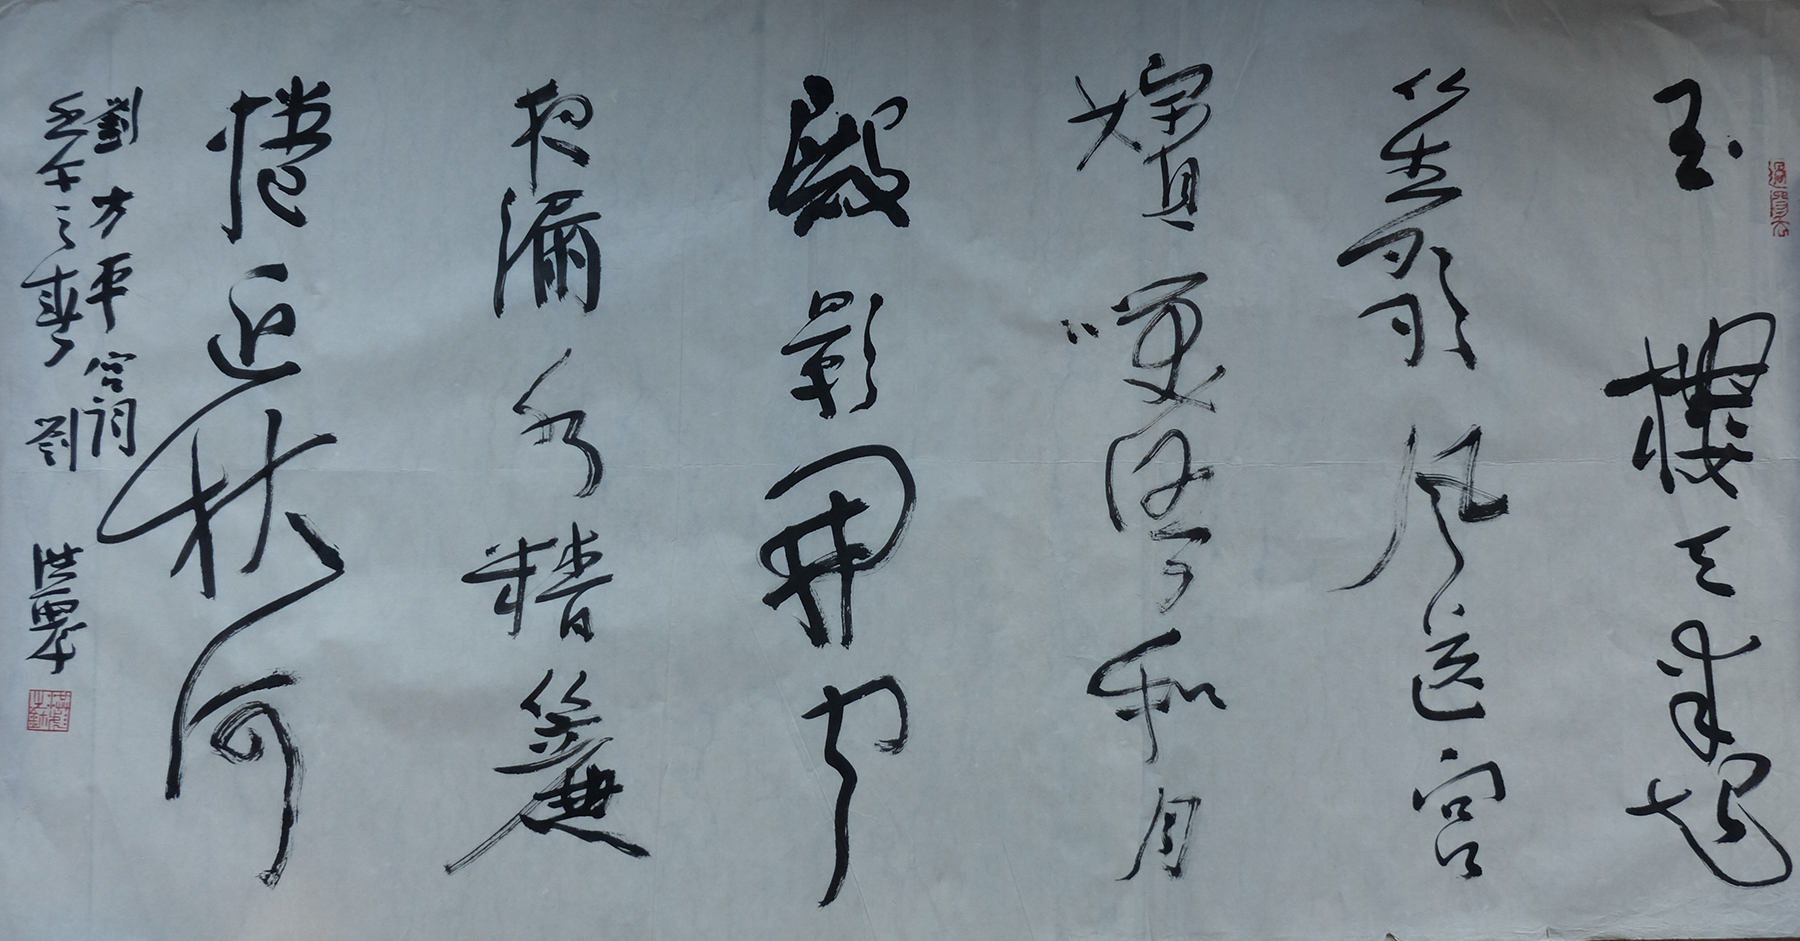 玉樓天半起
笙歌風送宮
嬪笑語和月
殿影開聞
夜漏水精簾
捲近秋河
劉方平宮詞
壬午之春 劉洪